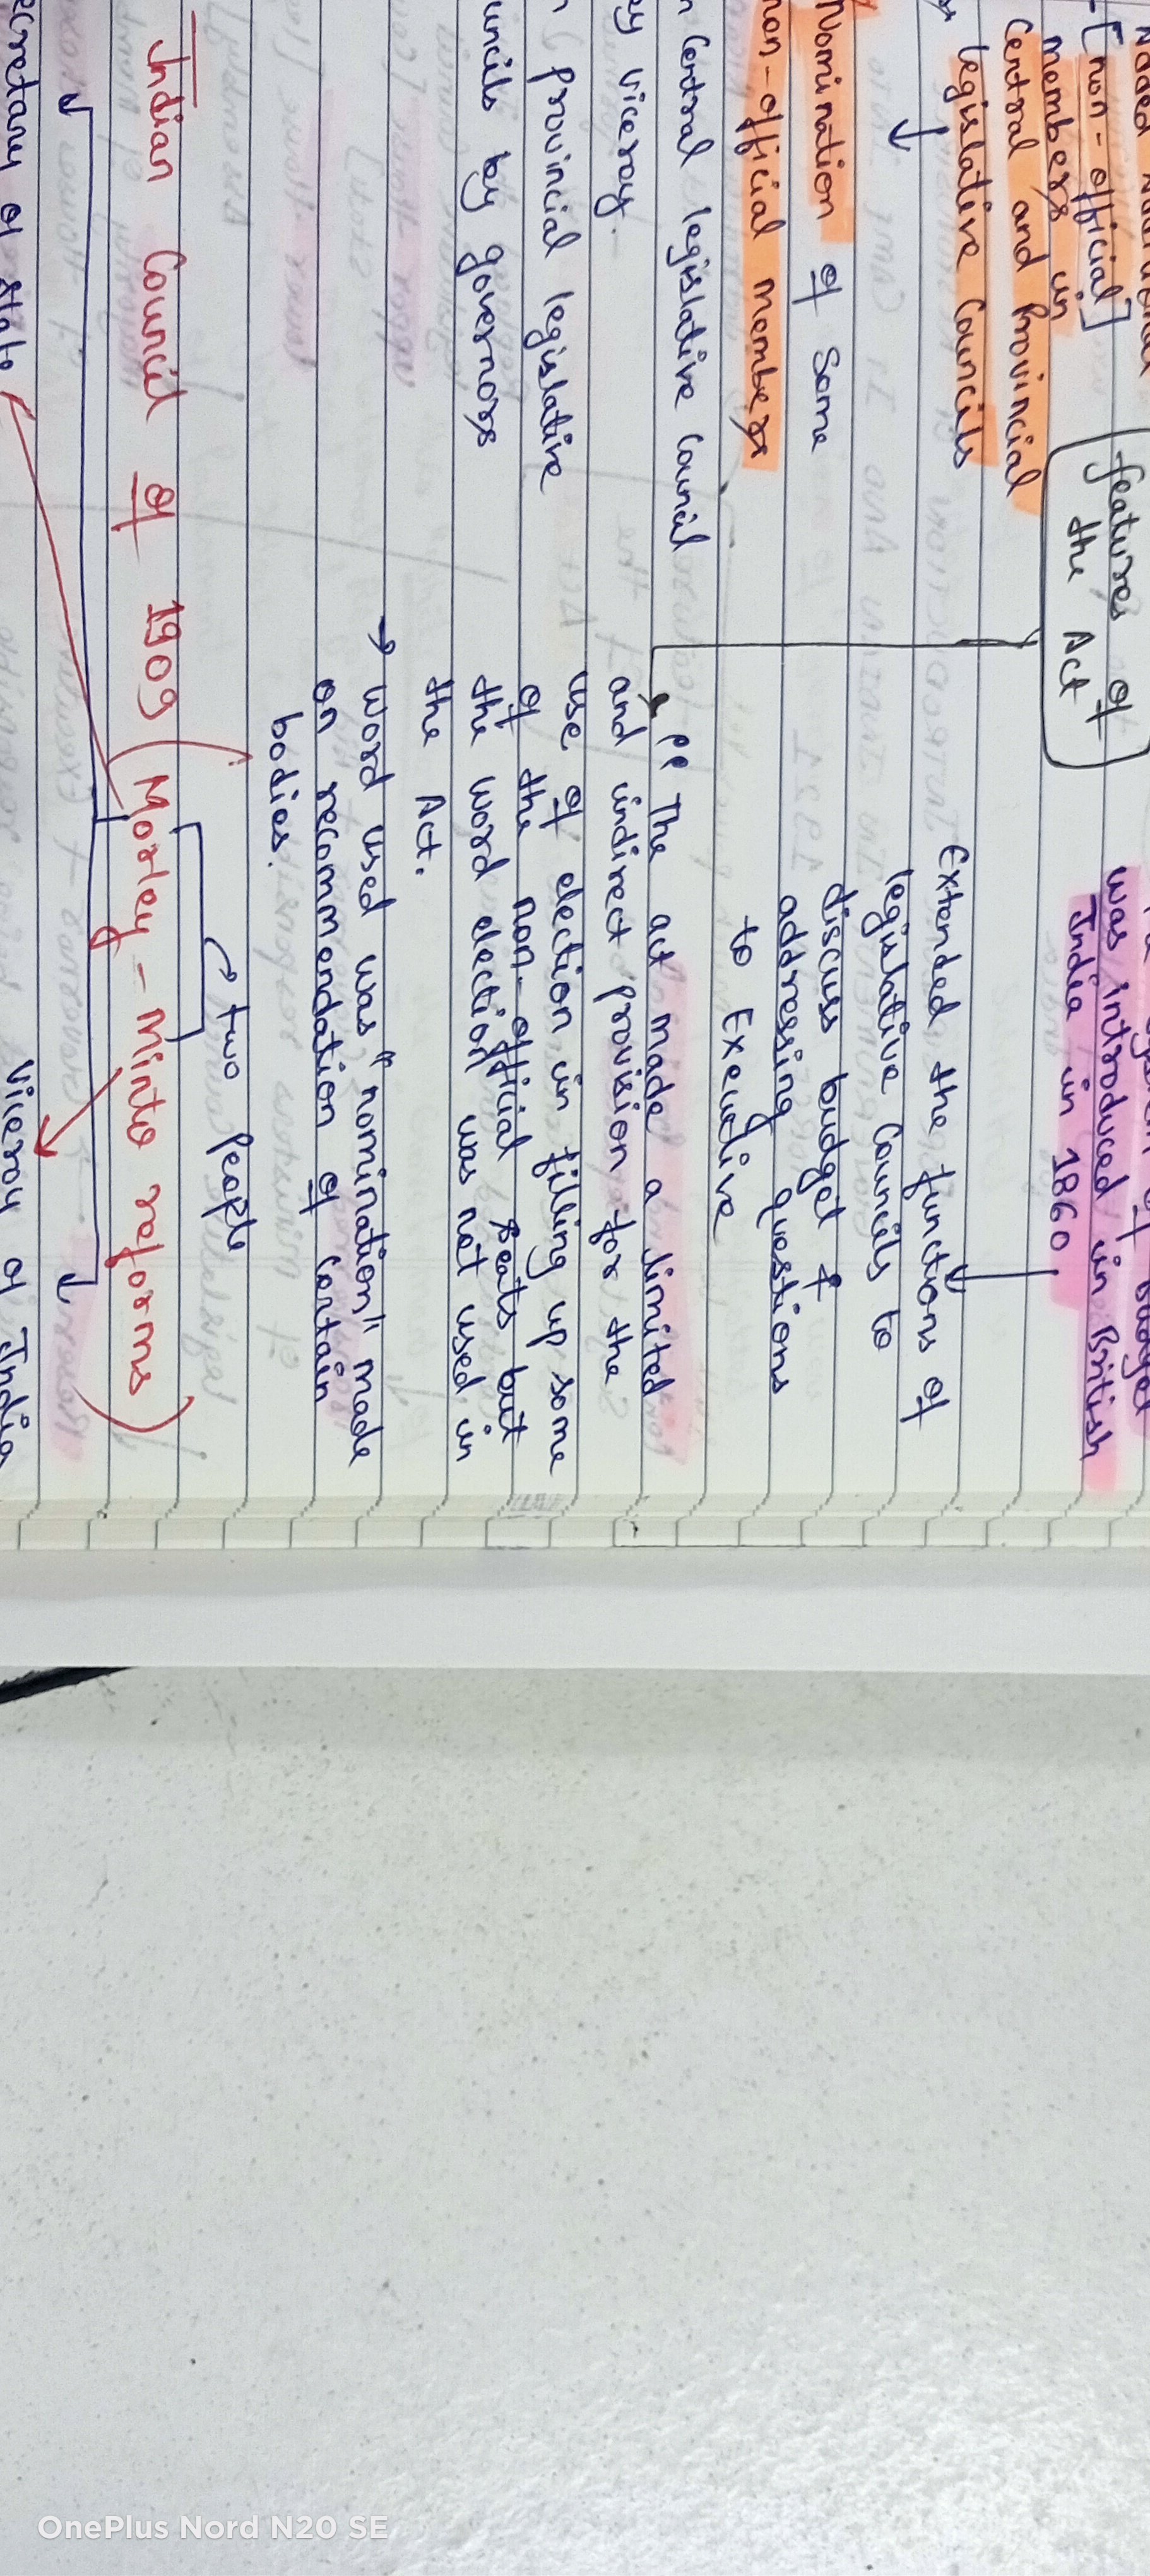 was introduced in British
India in 1860
[non-official]
members in
Central and Provincial
legislative Councils
features of
the Act
Extended the functions of
legislative Councils to
discuss budget &
addressing questions
to Executive
Nomination of Some
non-official members
Central legislative Council
viceroy.
provincial legislative
by governors
The act made a limited
and indirect provision for the
use of election in filling up some
of the non-official seats but
the word election was not used in
the Act.
→ word used was "nomination" made
on recommendation of certain
bodies.
two people
Indian Council of 1909 (Morley-Minto reforms)
of State
Viceroy of India
OnePlus Nord N20 SE